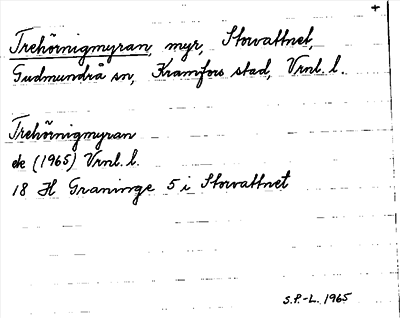 +
Trehörnigmyran, myr, Storvattnet,
Gudmundrå sn, Kramfors stad, Vrnl. l.
Trehörnigmyran
ek (1965) Vrnl. l.
18 H Graninge 5 i Storvattnet
S.P.-L. 1965